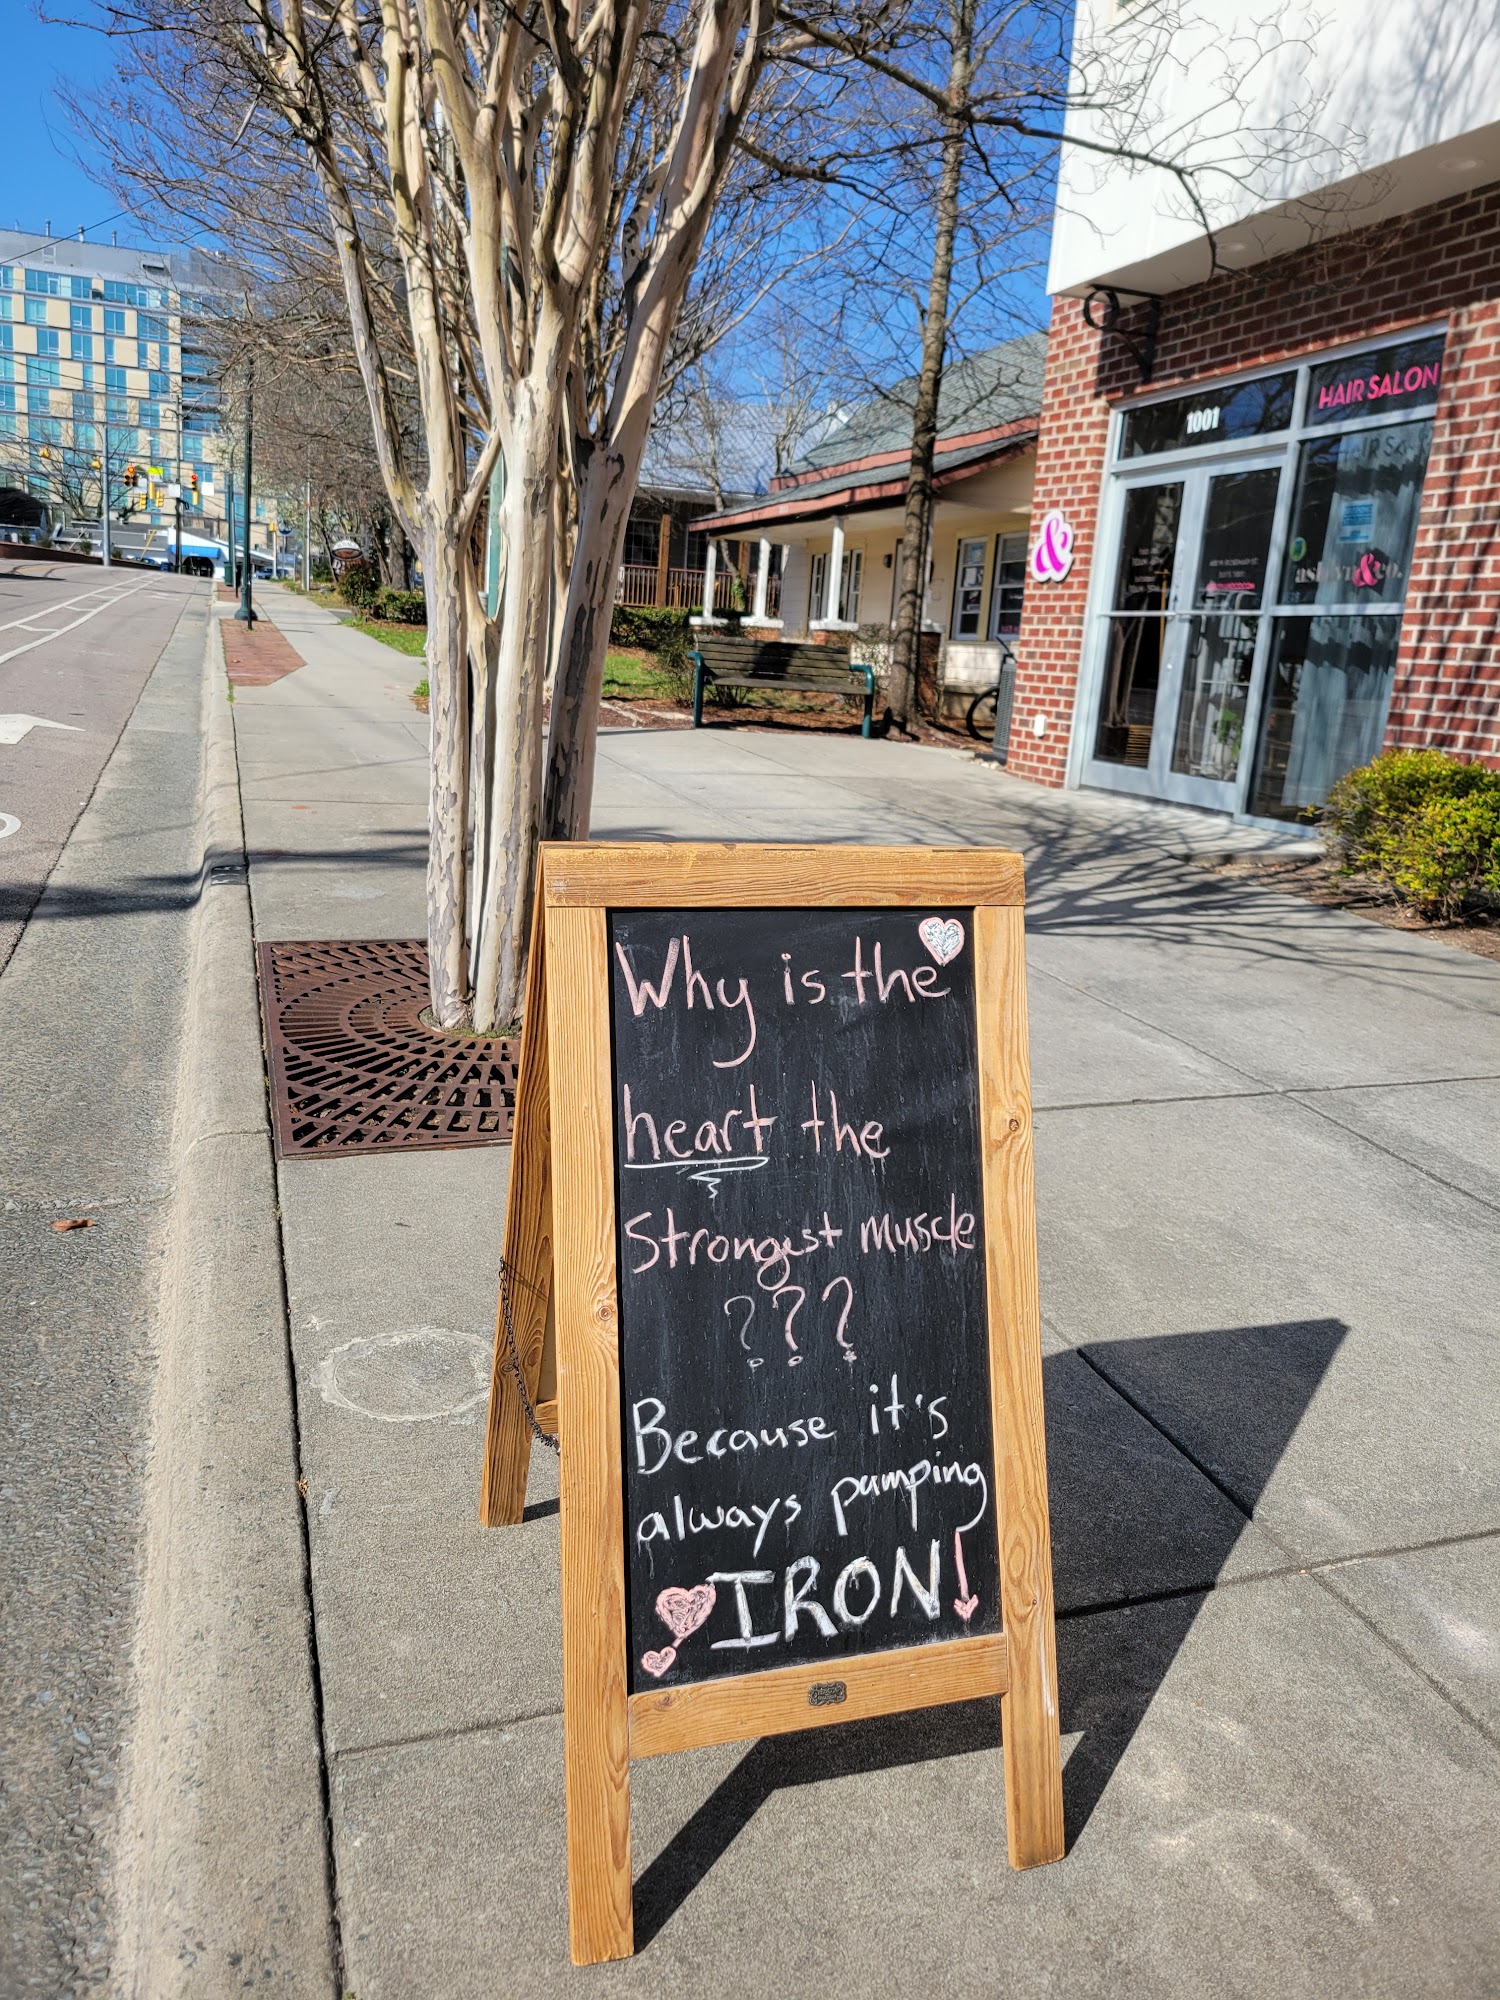 1001
HAIR SALON
&
ashlyn&co.
Why is the
heart the
Strongest muscle
???
Because it's
always pumping
IRON!